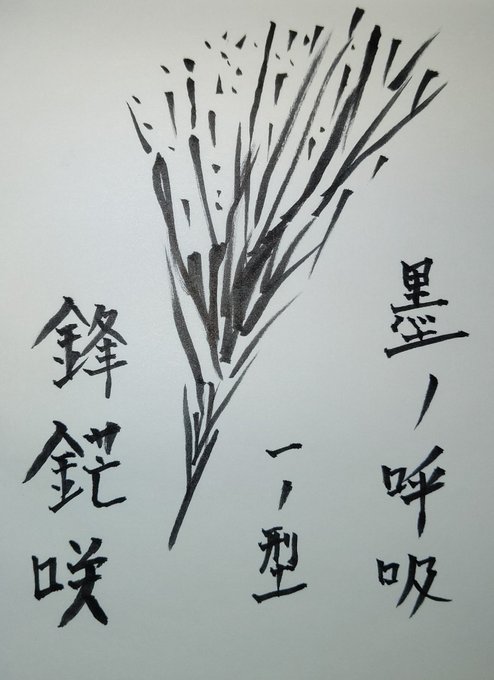 墨ノ呼吸
一ノ型
鋒鋩咲